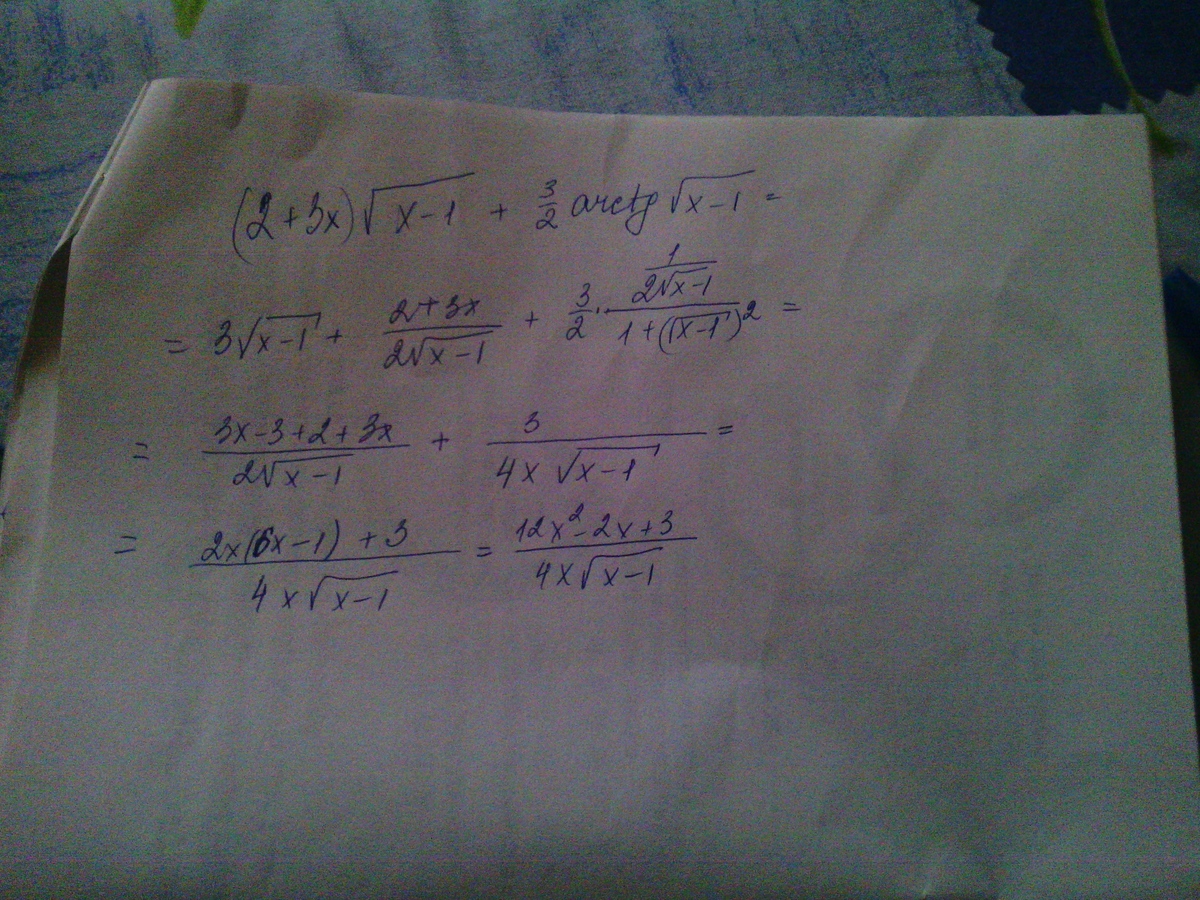 (2+3x)√(x-1) + 3/2 arctg √(x-1) =
= 3√(x-1) + (2+3x)/(2√(x-1)) + 3/2 · (1/(2√(x-1)))/(1+(√(x-1))²) =
= (3x-3+2+3x)/(2√(x-1)) + 3/(4x√(x-1)) =
= (2x(6x-1)+3)/(4x√(x-1)) = (12x²-2x+3)/(4x√(x-1))